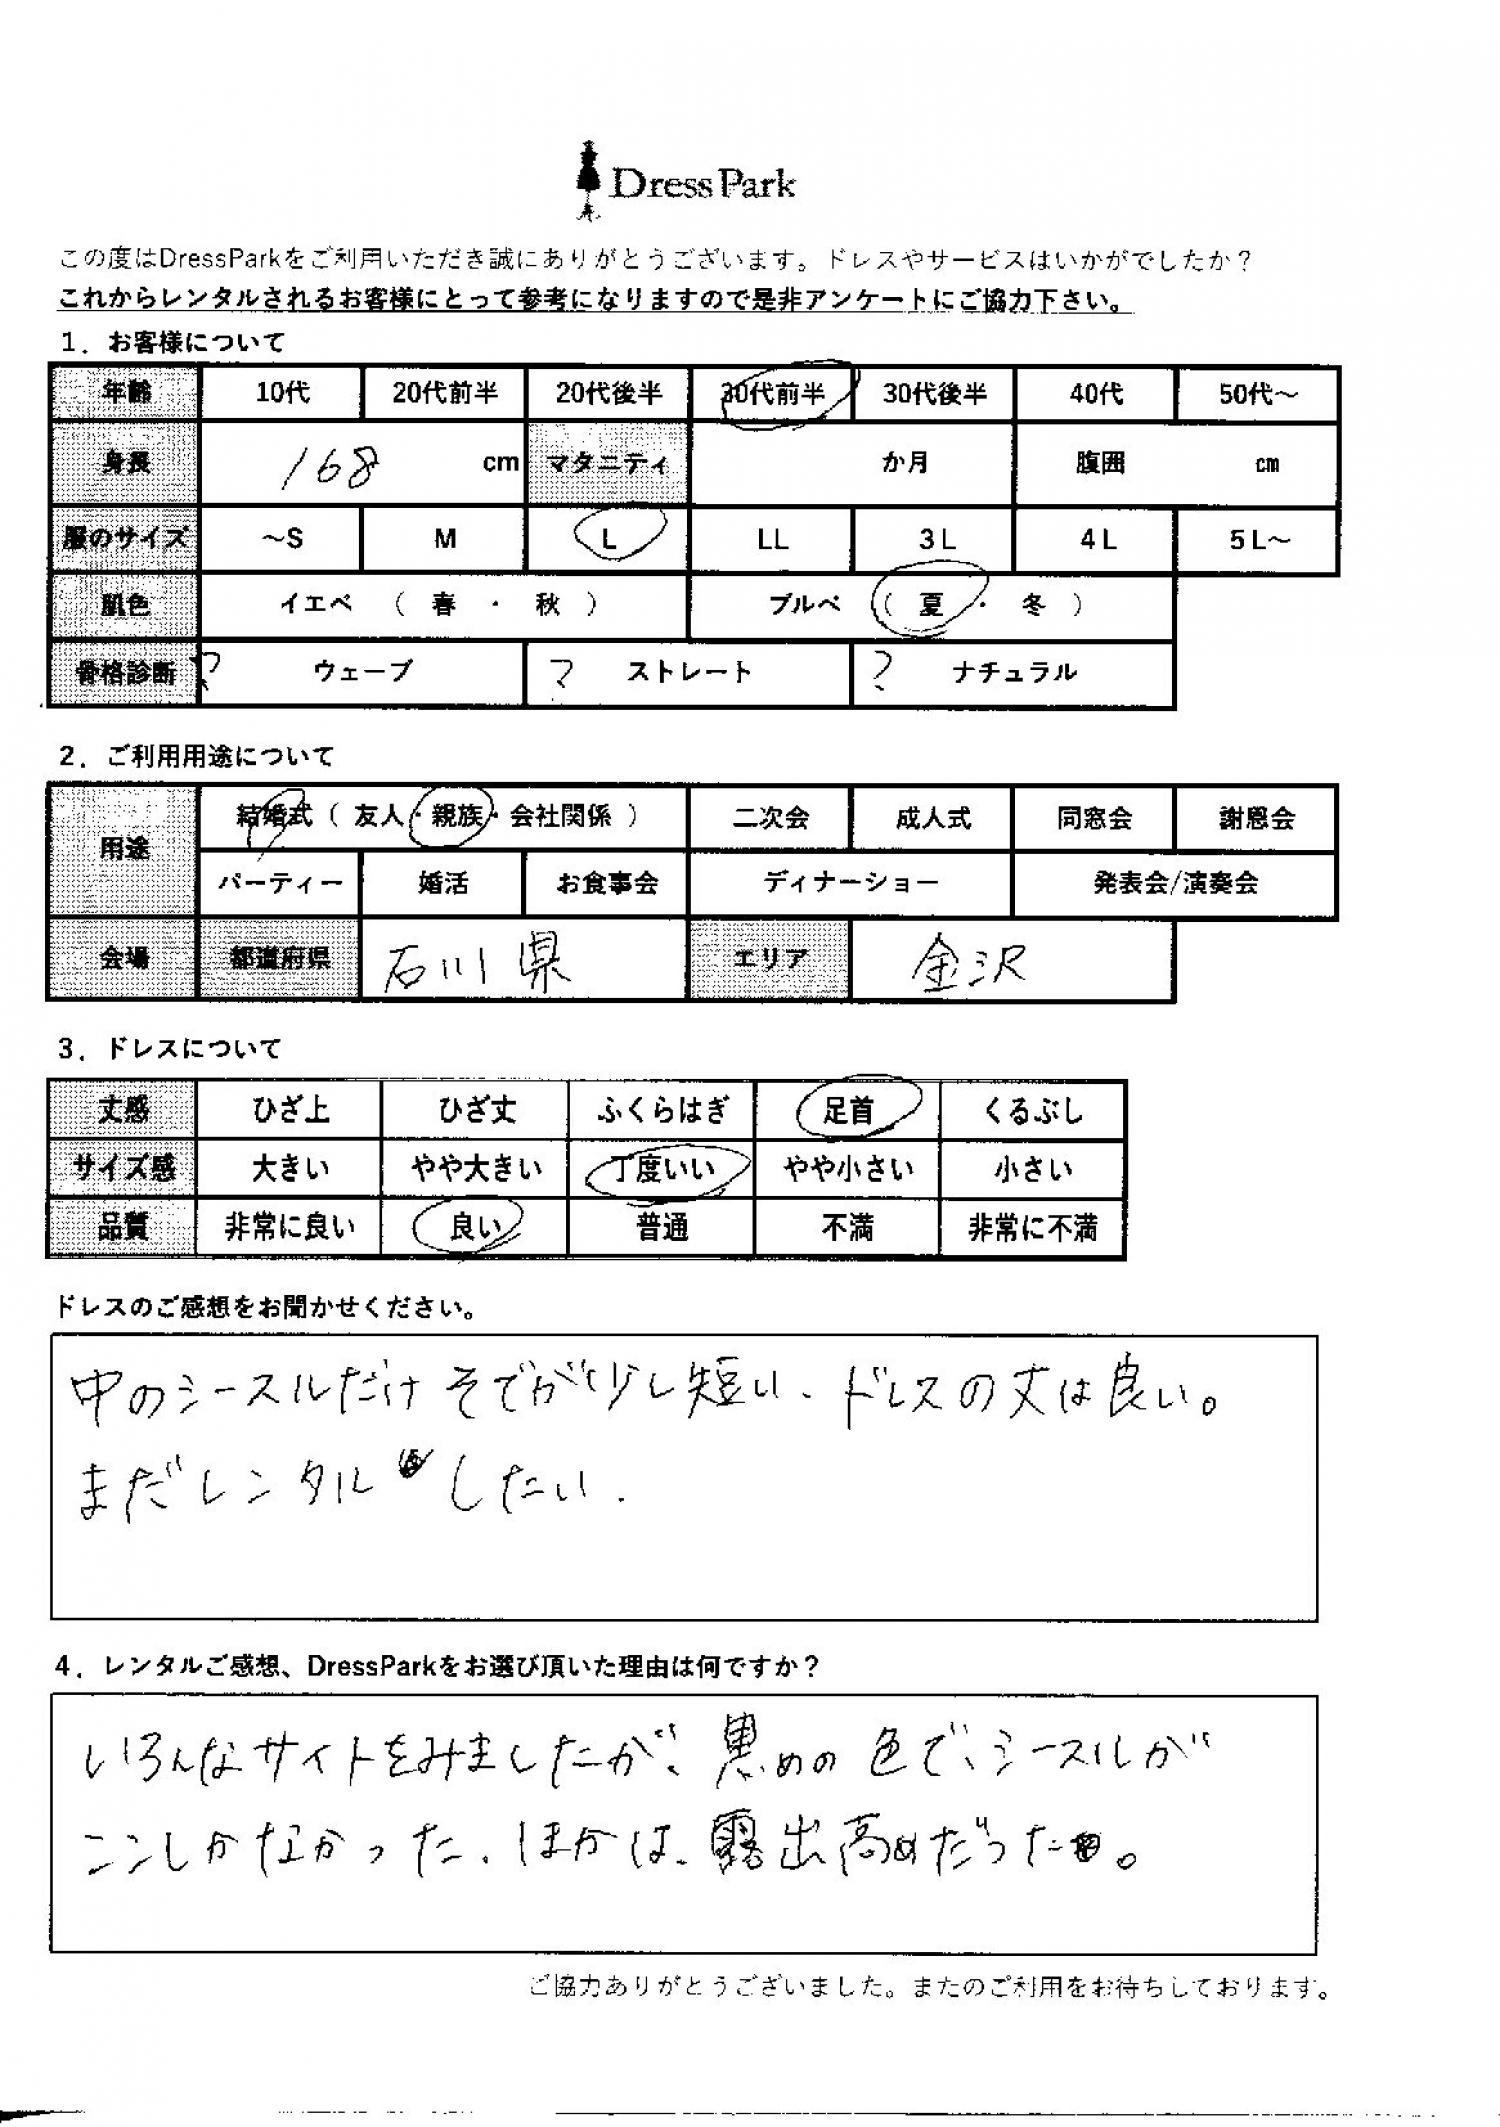 DressPark
この度はDressParkをご利用いただき誠にありがとうございます。ドレスやサービスはいかがでしたか？
これからレンタルされるお客様にとって参考になりますので是非アンケートにご協力下さい。
1．お客様について
年齢 10代 20代前半 20代後半 30代前半 30代後半 40代 50代～
身長 168 cm マタニティ か月 腹囲 cm
服のサイズ ～S M L LL 3L 4L 5L～
肌色 イエベ （ 春 ・ 秋 ） ブルベ （ 夏 ・ 冬 ）
骨格診断 ? ウェーブ ? ストレート ? ナチュラル
2．ご利用用途について
用途 結婚式（ 友人・親族・会社関係 ） 二次会 成人式 同窓会 謝恩会
パーティー 婚活 お食事会 ディナーショー 発表会/演奏会
会場 都道府県 石川県 エリア 金沢
3．ドレスについて
丈感 ひざ上 ひざ丈 ふくらはぎ 足首 くるぶし
サイズ感 大きい やや大きい 丁度いい やや小さい 小さい
品質 非常に良い 良い 普通 不満 非常に不満
ドレスのご感想をお聞かせください。
中のシースルだけそでが少し短い、ドレスの丈は良い。
まだレンタルしたい.
4．レンタルご感想、DressParkをお選び頂いた理由は何ですか？
いろんなサイトをみましたが、黒めの色で、シースルが
ここしかなかった、ほかは、露出高めだった。
ご協力ありがとうございました。またのご利用をお待ちしております。